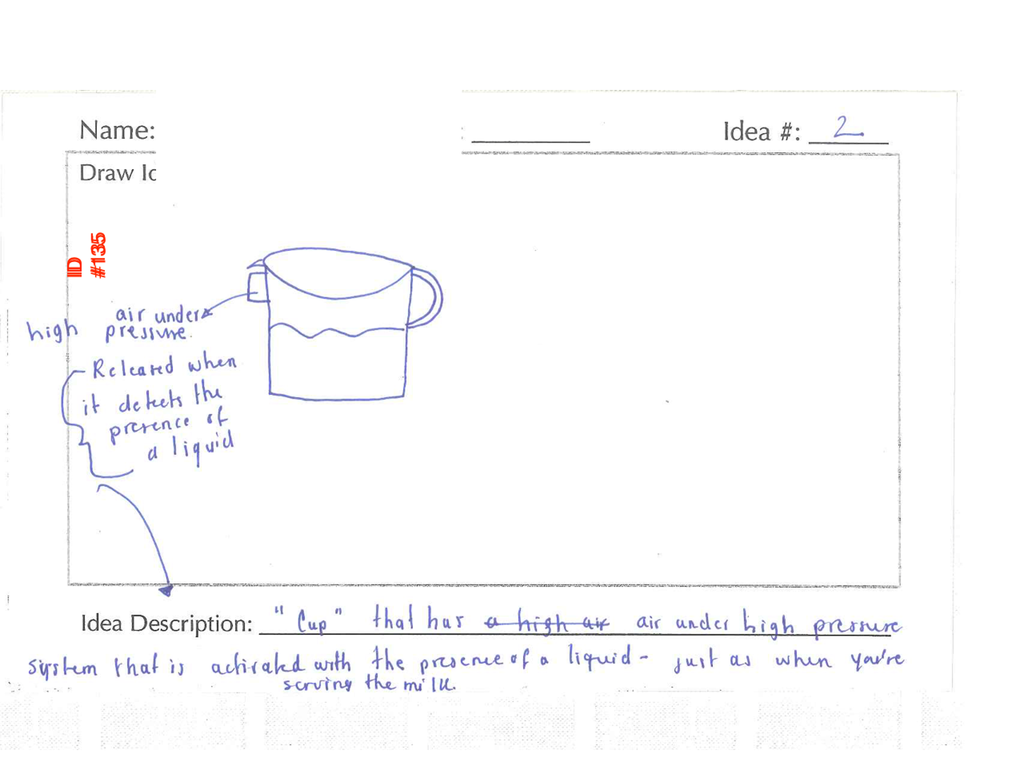 Name: : Idea #: 2
Draw Id
ID
#135
air under
high pressure.
Released when
it detects the
presence of
a liquid
Idea Description: "Cup" that has a high air air under high pressure
system that is activated with the presence of a liquid - just as when you're
serving the milk.